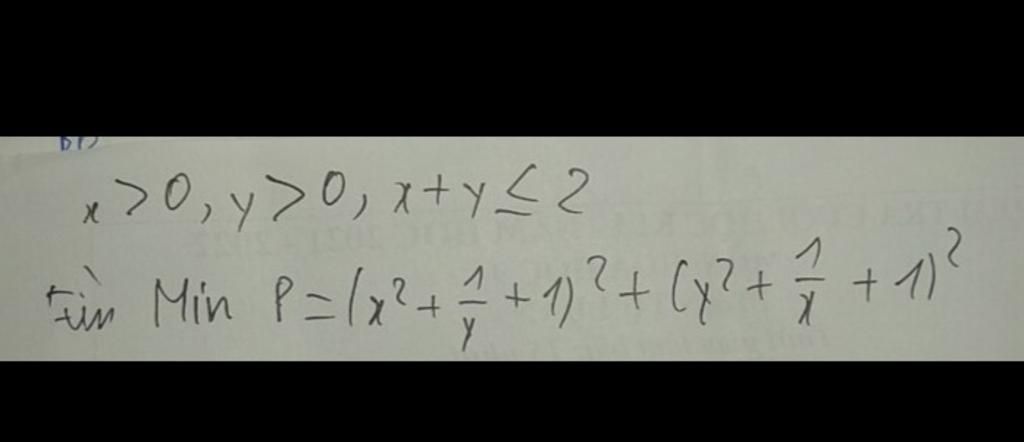 x > 0, y > 0, x + y ≤ 2
Tìm Min P = (x² + 1/y + 1)² + (y² + 1/x + 1)²